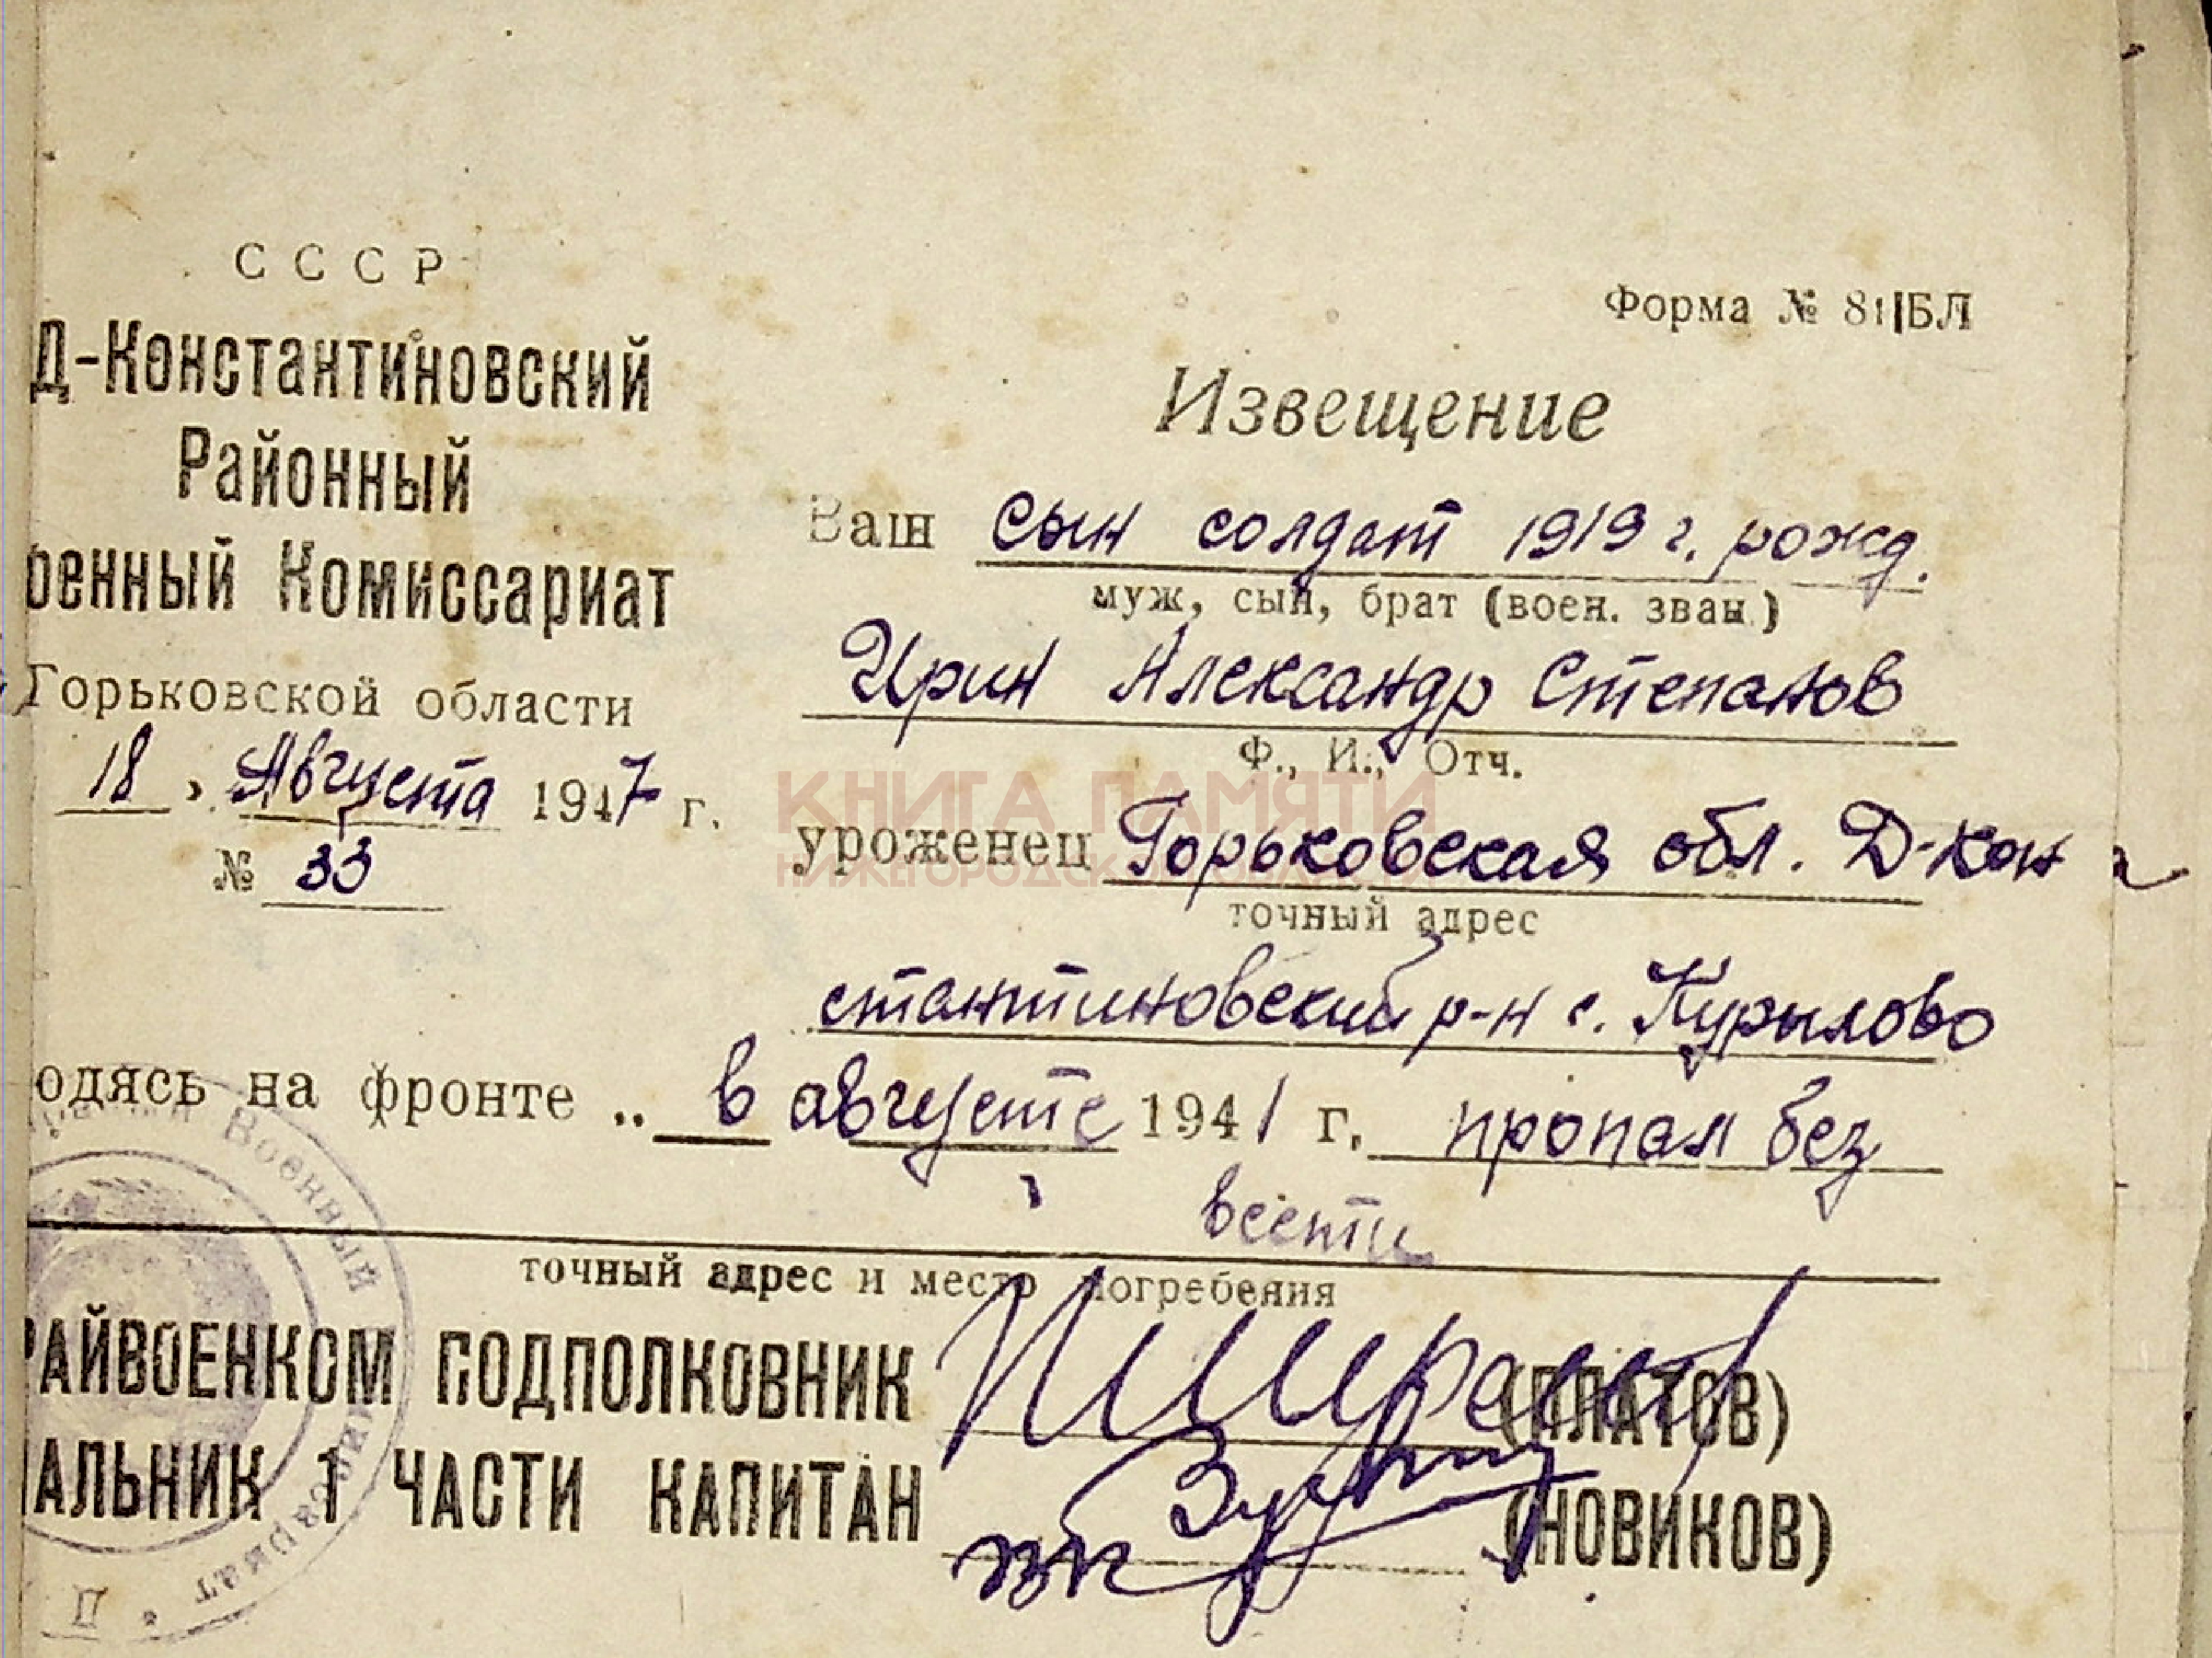 СССР
Д-Константиновский
Районный
оенный Комиссариат
Горьковской области
18 , Августа 1947 г.
№ 33
Форма № 81|БЛ
Извещение
Ваш сын солдат 1919 г. рожд.
муж, сын, брат (воен. зван.)
Ирин Александр Степанов
Ф., И., Отч.
КНИГА ПАМЯТИ
НИЖЕГОРОДСКОЙ ОБЛАСТИ
уроженец Горьковская обл. Д-Кон
точный адрес
стантиновский р-н с. Курылово
одясь на фронте .. в августе 1941 г. пропал без
вести
точный адрес и место погребения
РАЙВОЕНКОМ ПОДПОЛКОВНИК (ПЛАТОВ)
АЛЬНИК 1 ЧАСТИ КАПИТАН (НОВИКОВ)
Военный Комиссариат